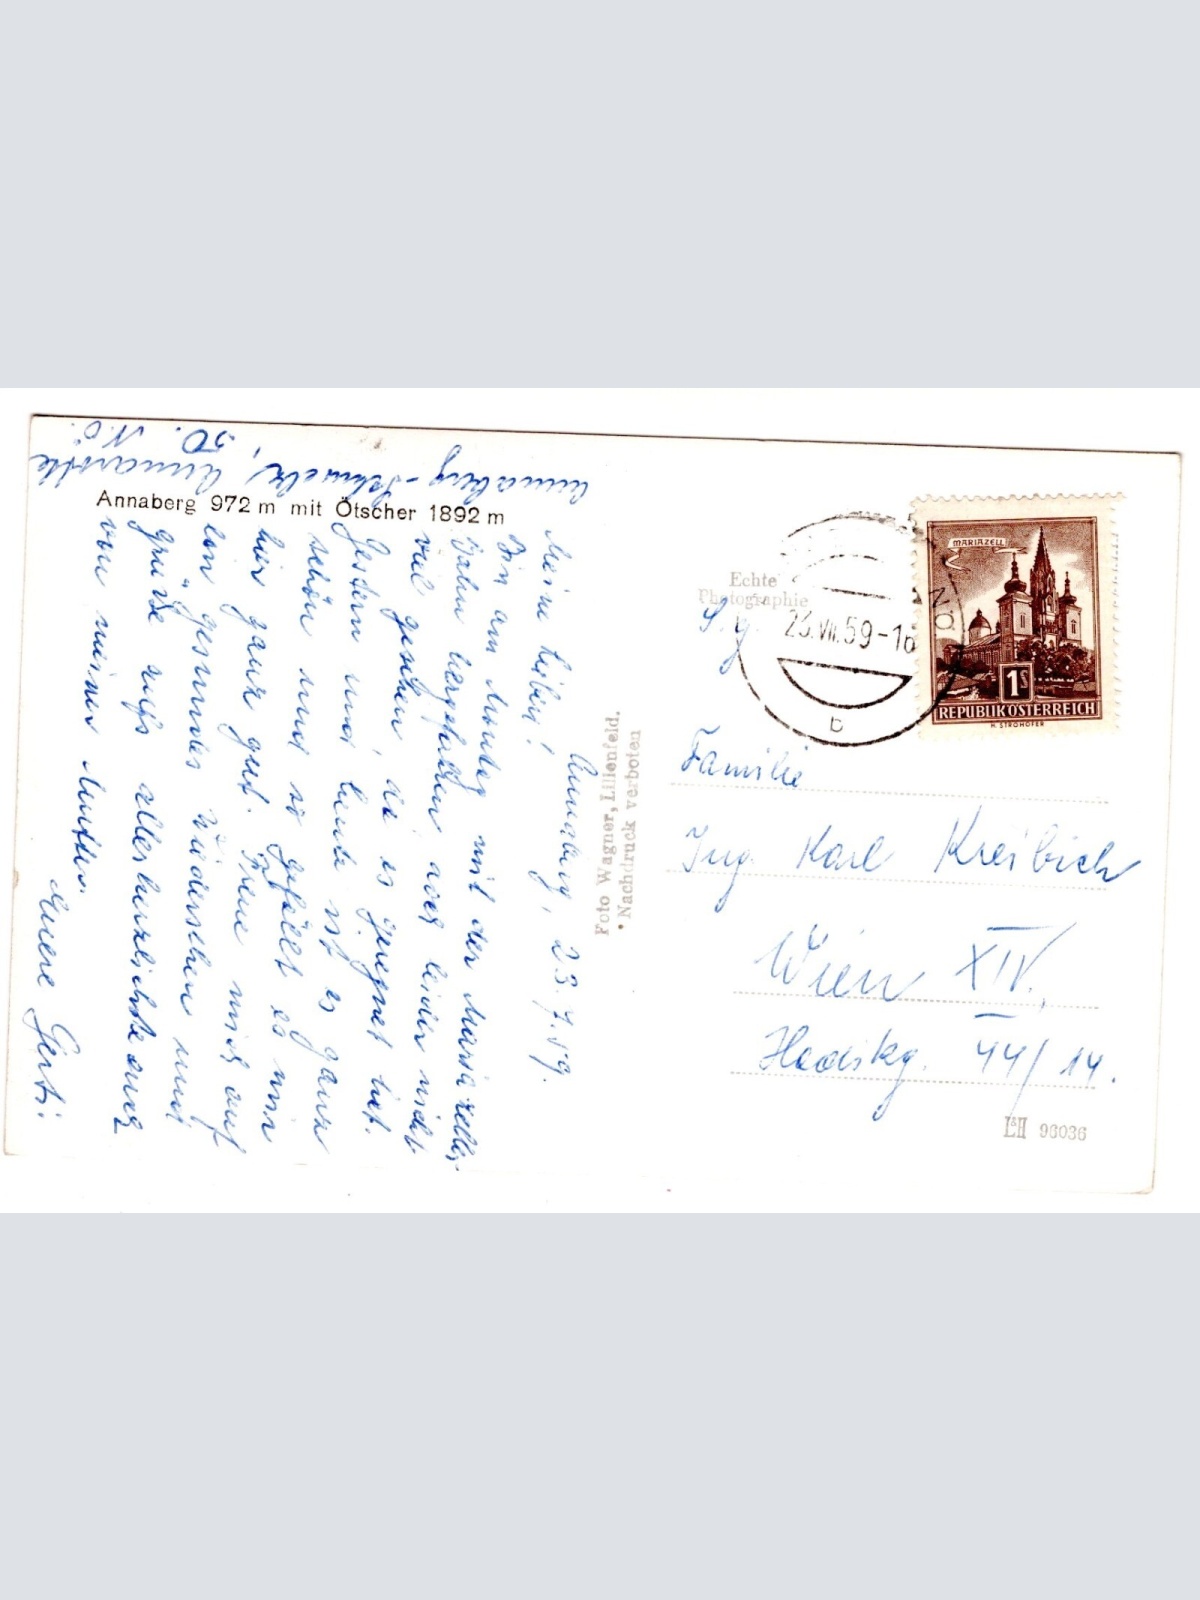 Annaberg 972 m mit Ötscher 1892 m
Annaberg, 23.7.59.
Meine Lieben!
Bin am Montag mit der Mariazeller
Bahn hergefahren aber leider nicht
viel gesehen, da es geregnet hat.
Gestern und heute ist es ganz
schön und so gefällt es mir
hier ganz gut. Freue mich auf
ein gesundes Wiedersehen und
grüße aufs allerherzlichste auch
von meiner Mutter.
Euere Gerti.
Annaberg - 50. N.Ö.
Foto Wagner, Lilienfeld.
• Nachdruck verboten
Echte
Photographie
MARIAZELL
1S
REPUBLIK ÖSTERREICH
H. STROHOFER
23.VII.59-16
N.Ö
b
S. g.
Familie
Ing. Karl Kreibich
Wien XIV.,
Hadikg. 44/14.
L&H 96036